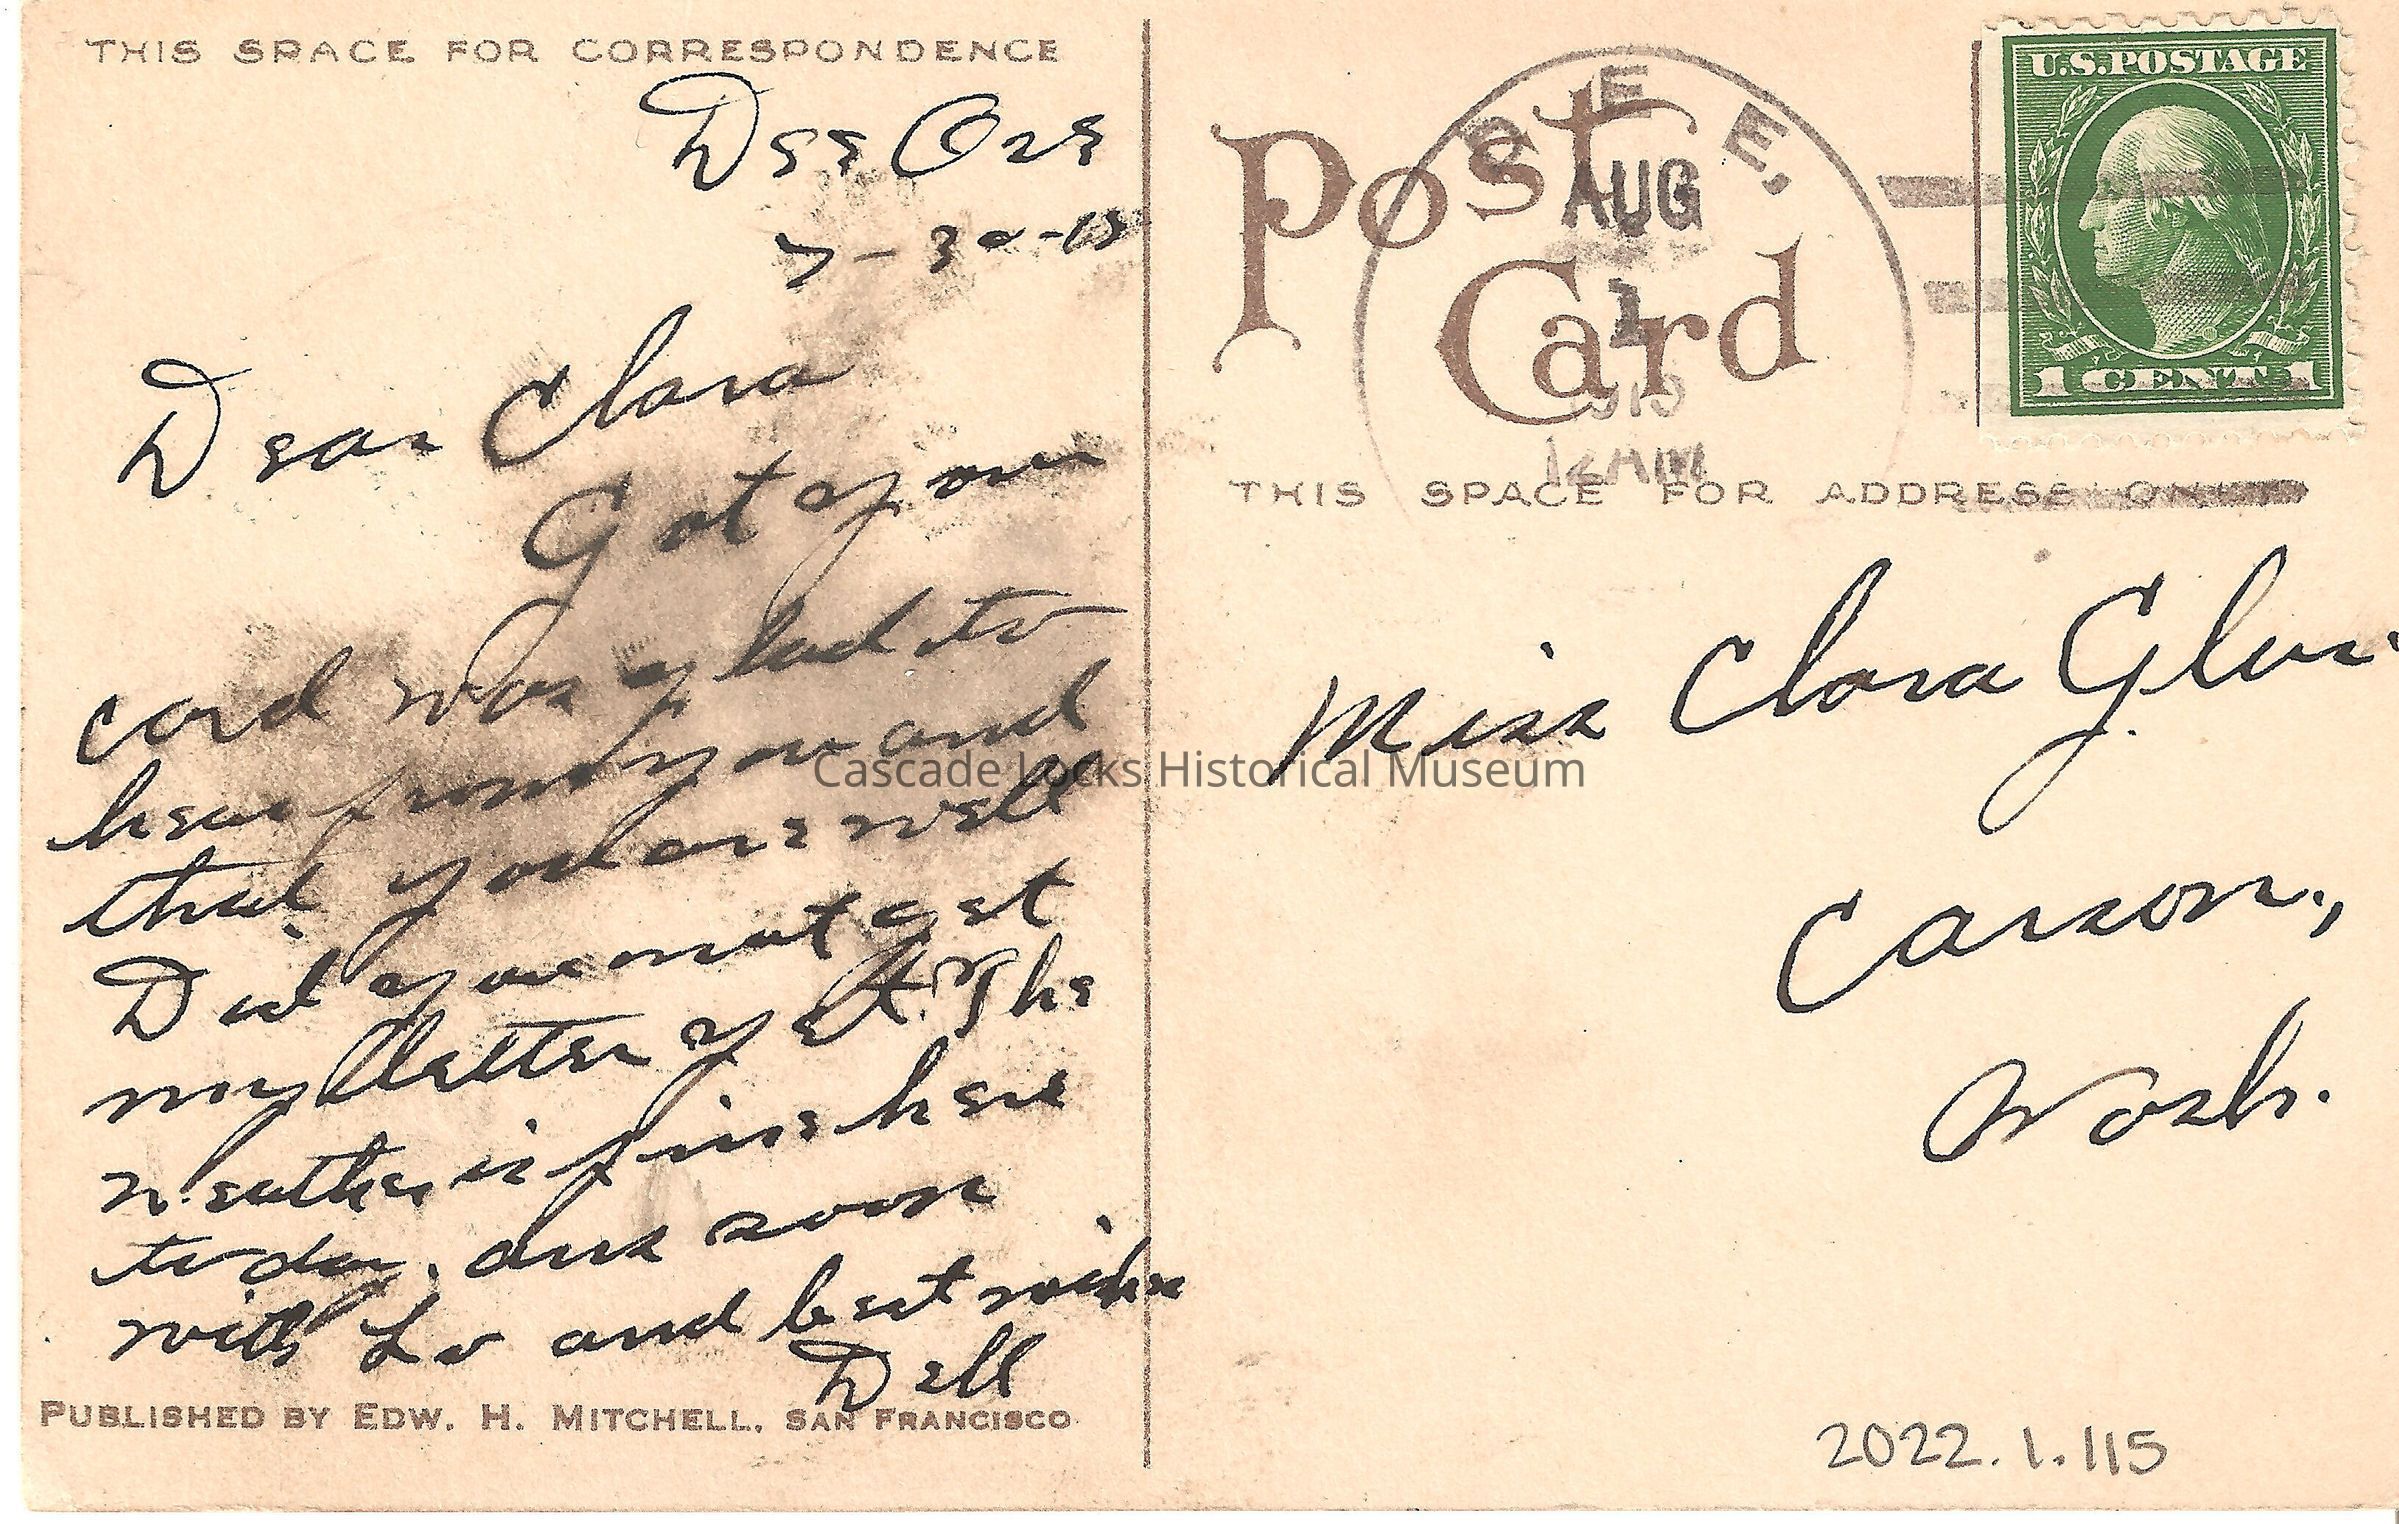 THIS SPACE FOR CORRESPONDENCE
Dee Ore
7-30-15
Dear Clara
Got your
card was glad to
hear from you and
that you are well
Did you not get
my letter yet. The
weather is fine here
today. ans soon
with Lv and best wishs
Dell
PUBLISHED BY EDW. H. MITCHELL, SAN FRANCISCO
Post Card
DEE,
AUG
1
12 AM
U.S. POSTAGE
1 CENT 1
THIS SPACE FOR ADDRESS ONLY
Miss Clara
Carson,
Wash.
Cascade Locks Historical Museum
2022.1.115